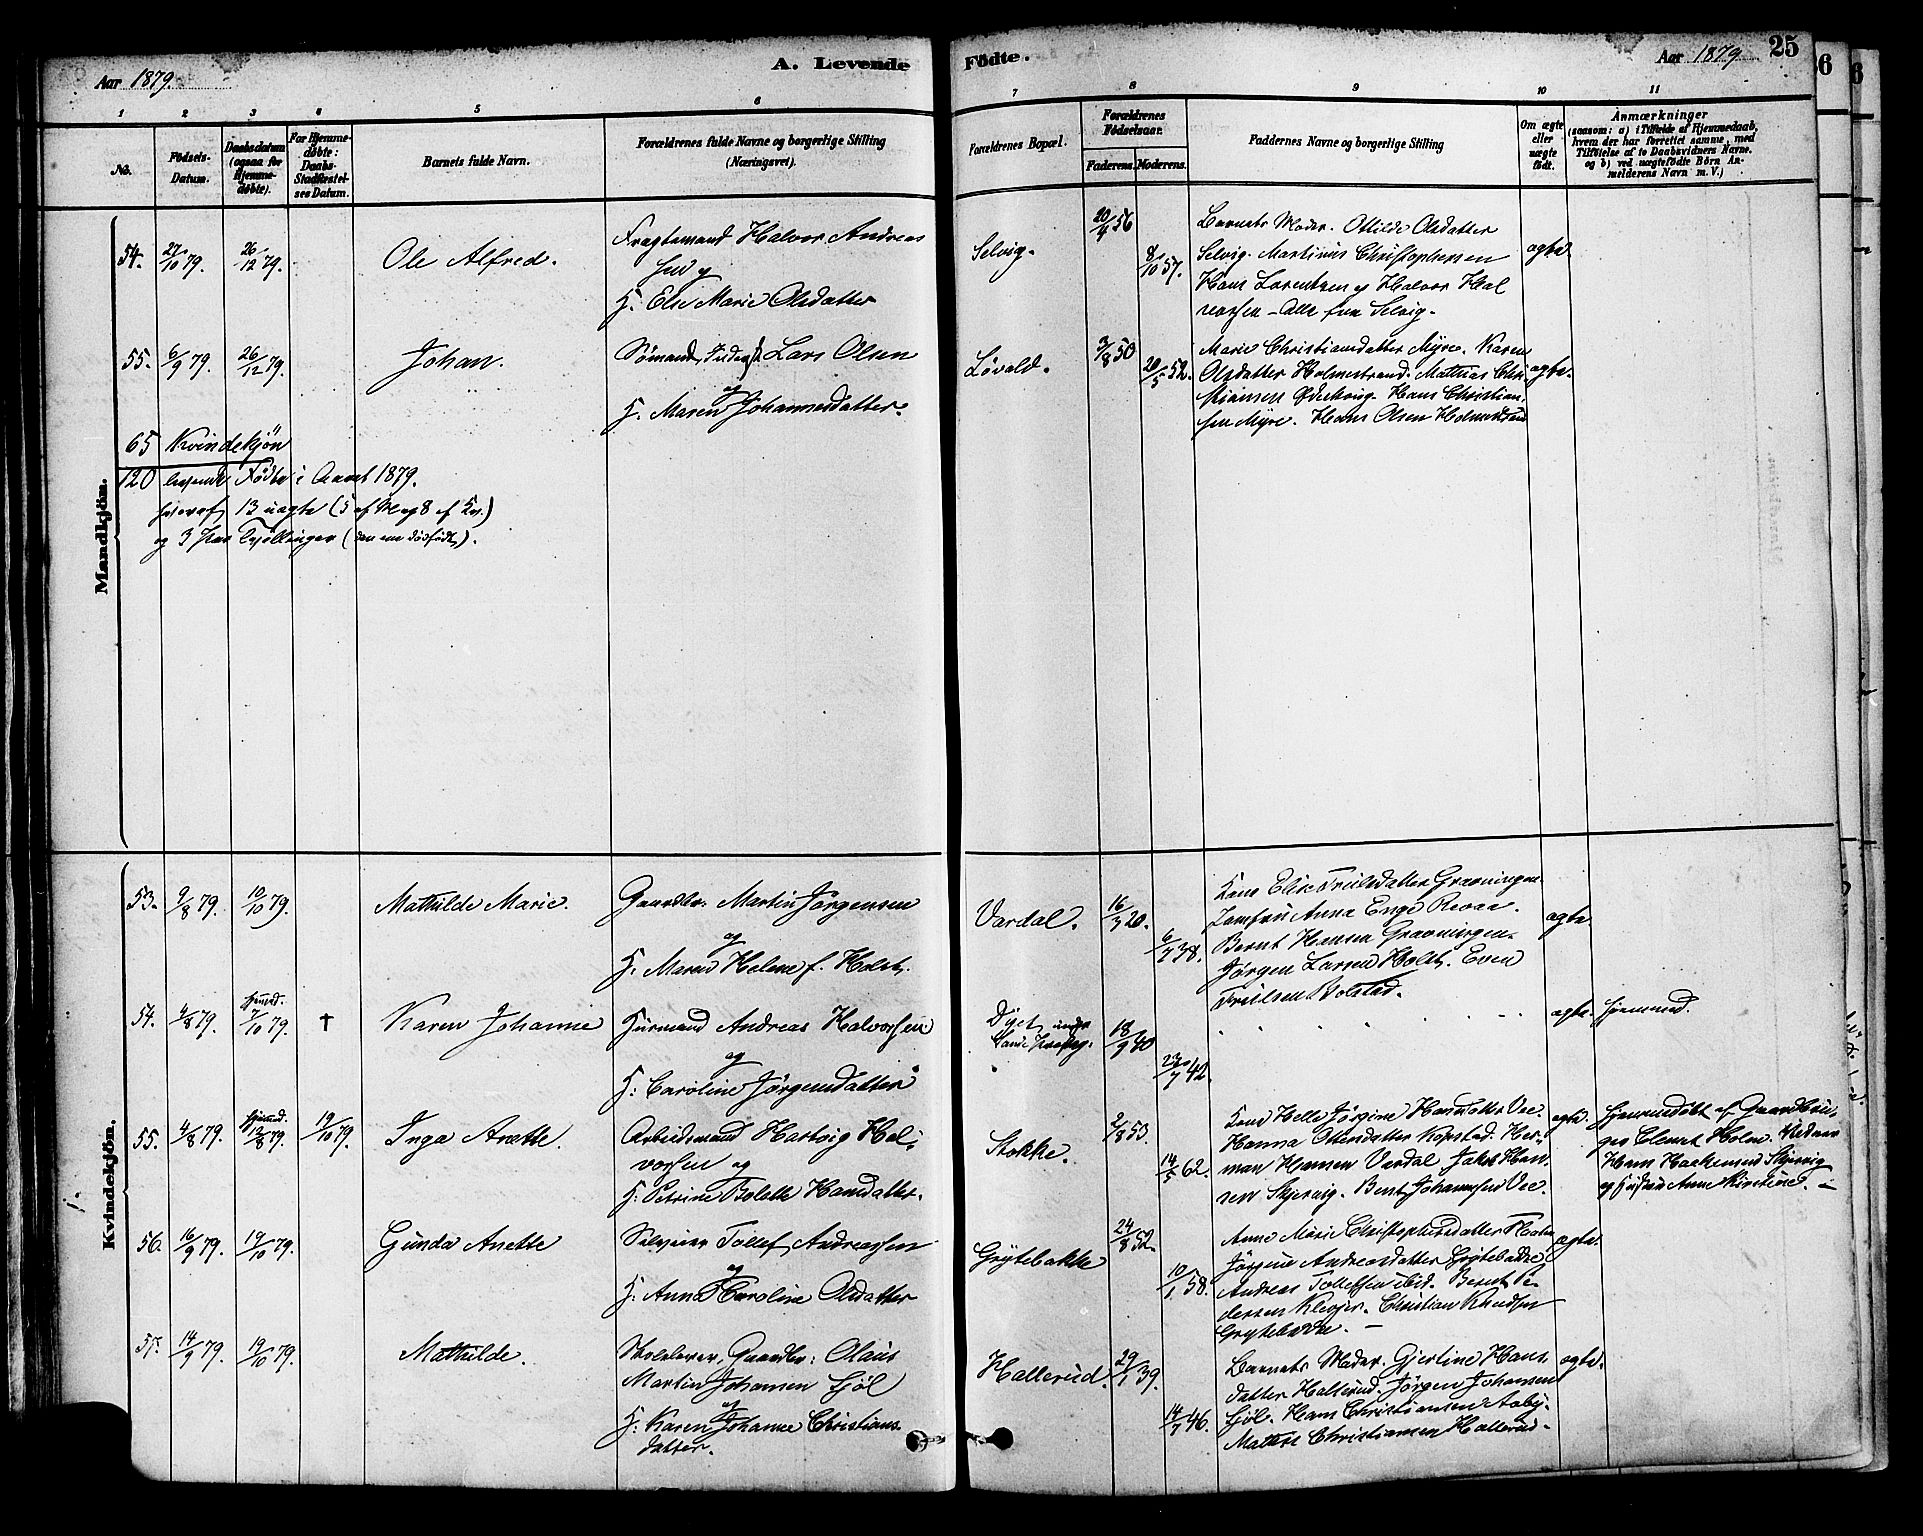 Aar 1879.
A. Levende
Födte.
Aar 1879
25
1 2 3 4 5 6 7 8 9 10 11
No.
Födsels-Datum.
Daabsdatum (ogsaa for Hjemme-döbte).
For Hjemme-döbte: Daabs-Stadfæstel-ses Datum.
Barnets fulde Navn.
Forældrenes fulde Navne og borgerlige Stilling (Næringsvei).
Forældrenes Bopæl.
Forældrenes Födselsaar.
Faderens.
Moderens.
Faddernes Navne og borgerlige Stilling
Om ægte eller uægte födt.
Anmærkninger
(saasom: a) i Tilfælde af Hjemmedaab, hvem der har forrettet samme, med Tilföielse af to Daabsvidners Navne. og b) ved uægtefödte Börn Anmelderens Navn m. V.)
Mandkjön.
54. 27/10 79. 26/12 79. Ole Alfred.
Fragtemand Halvor Andreas
og
H. Else Marie Olsdatter
Selvig.
20/4 56
8/10 57.
Barnets Moder. Otilde Olsdatter
Selvig. Martinus Christophersen
Hans Lorentsen og Halvor Hal
vorsen - Alle fra Selvig.
ægte.
55. 6/9 79. 26/12 79. Johan.
Sömand, Lars Olsen
og
H. Maren Johannesdatter.
Lövald.
3/8 50
20/5 52.
Marie Christiansdatter Myre. Karen
Olsdatter Holmestrand. Mathias Chri
stiansen . Hans Christian.
sen Myre. Hans Olsen
ægte.
65 Kvindekjön
120 levende Födte i Aaret 1879.
hvoraf 13 uægte (5 af M og 8 af Kv.)
og 3 Par Tvillinger (den ene dödfödt).
Kvindekjön.
53. 9/8 79. 10/10 79. Mathilde Marie.
Gaardbr. Martin Jörgensen
og
H. Maren Helene f. Holst.
Vardal.
16/3 20.
6/7 38.
Kone Elise Truilsdatter Gravningen
Jomfru Anna Enge Revaa.
Bernt Hansen Gravningen.
Jörgen Larsen Holst. Even
Truilsen Bolstad.
ægte.
54. 4/8 79. hjemd. 7/10 79. † Karen Johanne
Huusmand Andreas Halvorsen
og
H. Caroline Jörgensdatter
under
18/9 40
23/7 42.
ægte. hjemmed.
55. 4/8 79. hjemmed. 12/8 79. 19/10 79. Inga Anette.
Arbeidsmand Hartvig Hal-
vorsen og
H. Petrine Bolette Hansdatter.
Stokke.
2/8 53.
14/5 62.
Kone Helle Jörgine Hansdatter Vee
Hanna Ottersdatter Kopstad. Her-
man Hansen Vardal Jakob Han-
sen Skjervig. Bent Johannesen Vee.
ægte
hjemmedöbt af Gaardbru-
ger Clemet Holm. Vidner
Hans Haakensen Skjervig
og Hustru Anne Kirstine. -
56. 16/9 79. 19/10 79. Gunda Anette
Selveier Tollef Andreassen
og
H. Anne Karoline Olsdatter
Grytebakke
24/8 52.
10/1 58.
Anne Marie Christophersdatter Holm
Jörgine Andreasdatter Grytebakke,
Andreas Tollefsen ibid. Bernt Pe-
dersen Klevjer. Christian Knudsen
Grytebakke. -
ægte.
57. 14/9 79. 19/10 79. Mathilde.
Skolelærer, Gaardbr: Olaus
Martin Johansen Fjöl
og
H. Karen Johanne Christians
datter.
Hallerud.
29/1 39.
14/7 46.
Barnets Moder. Gjertine Hans
datter Hallerud. Jörgen Johansen
Fjöl. Hans Christiansen Aaby.
Mathis Christiansen Hallerud.
ægte.